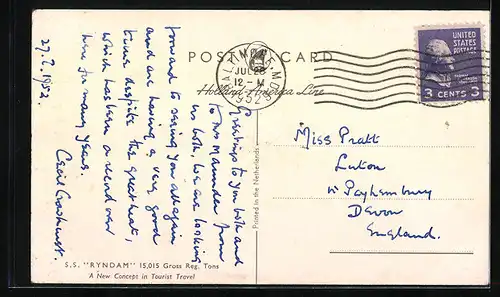 POST CARD
Holland-America Line
BALTIMORE, MD.
JUL 28
12 - M
1952
UNITED STATES
POSTAGE
3 CENTS 3
27.7.1952.
Greetings to you both and
to Mrs Maunder from
us both, we are looking
forward to seeing you all again
and are having a very good
time despite the great heat,
which has been a record over
here for many years.
Cecil Crowhurst.
Miss Pratt
Luton
Nr Payhembury
Devon
England.
Printed in the Netherlands
S.S. "RYNDAM" 15,015 Gross Reg. Tons
A New Concept in Tourist Travel